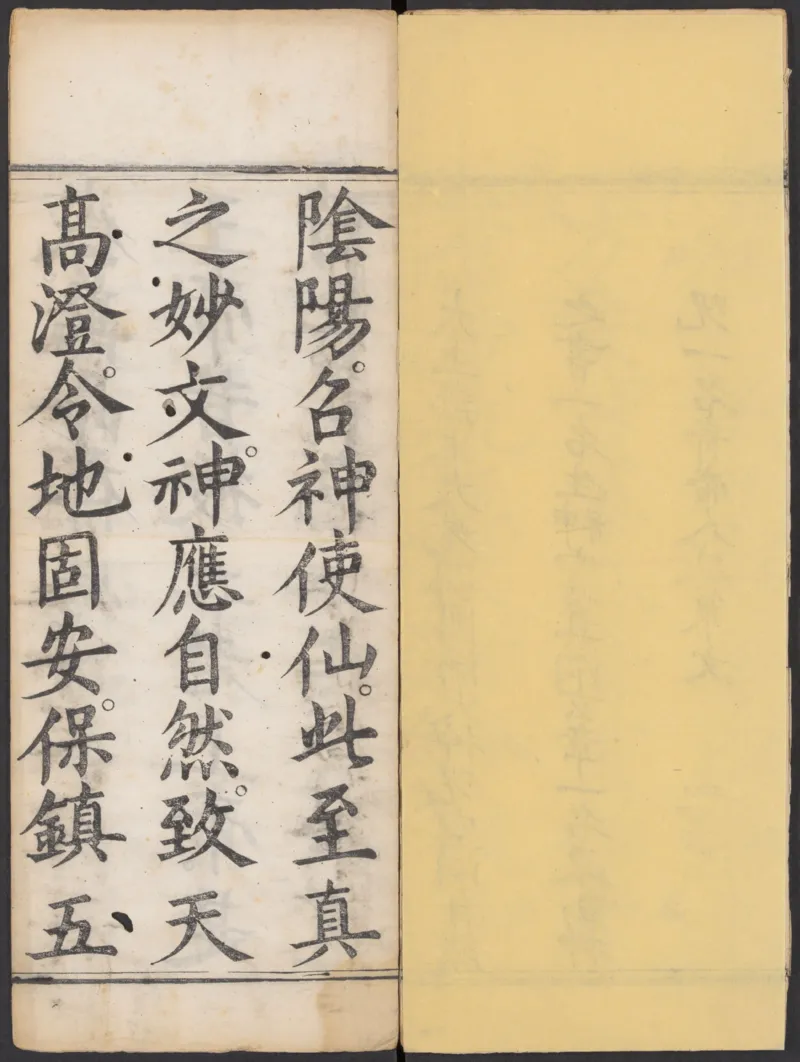 陰陽。召神使仙。此至真
之妙文。神應自然。致天
髙澄。令地固安。保鎮五